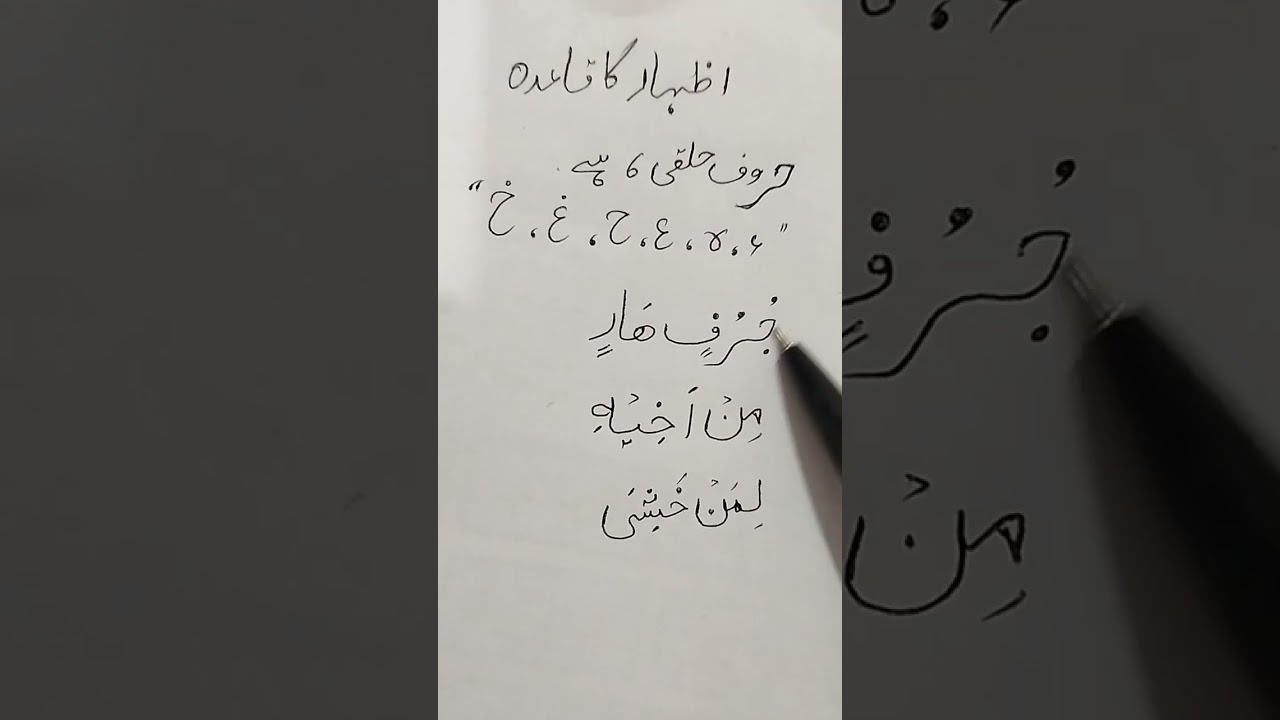 اظہار کا قاعدہ
حروف حلقی 6 ہے
"ء، ہ، ع، ح، غ، خ"
جُرُفٍ هَارٍ
مِنْ اَخِيْهِ
لِمَنْ خَشِىَ